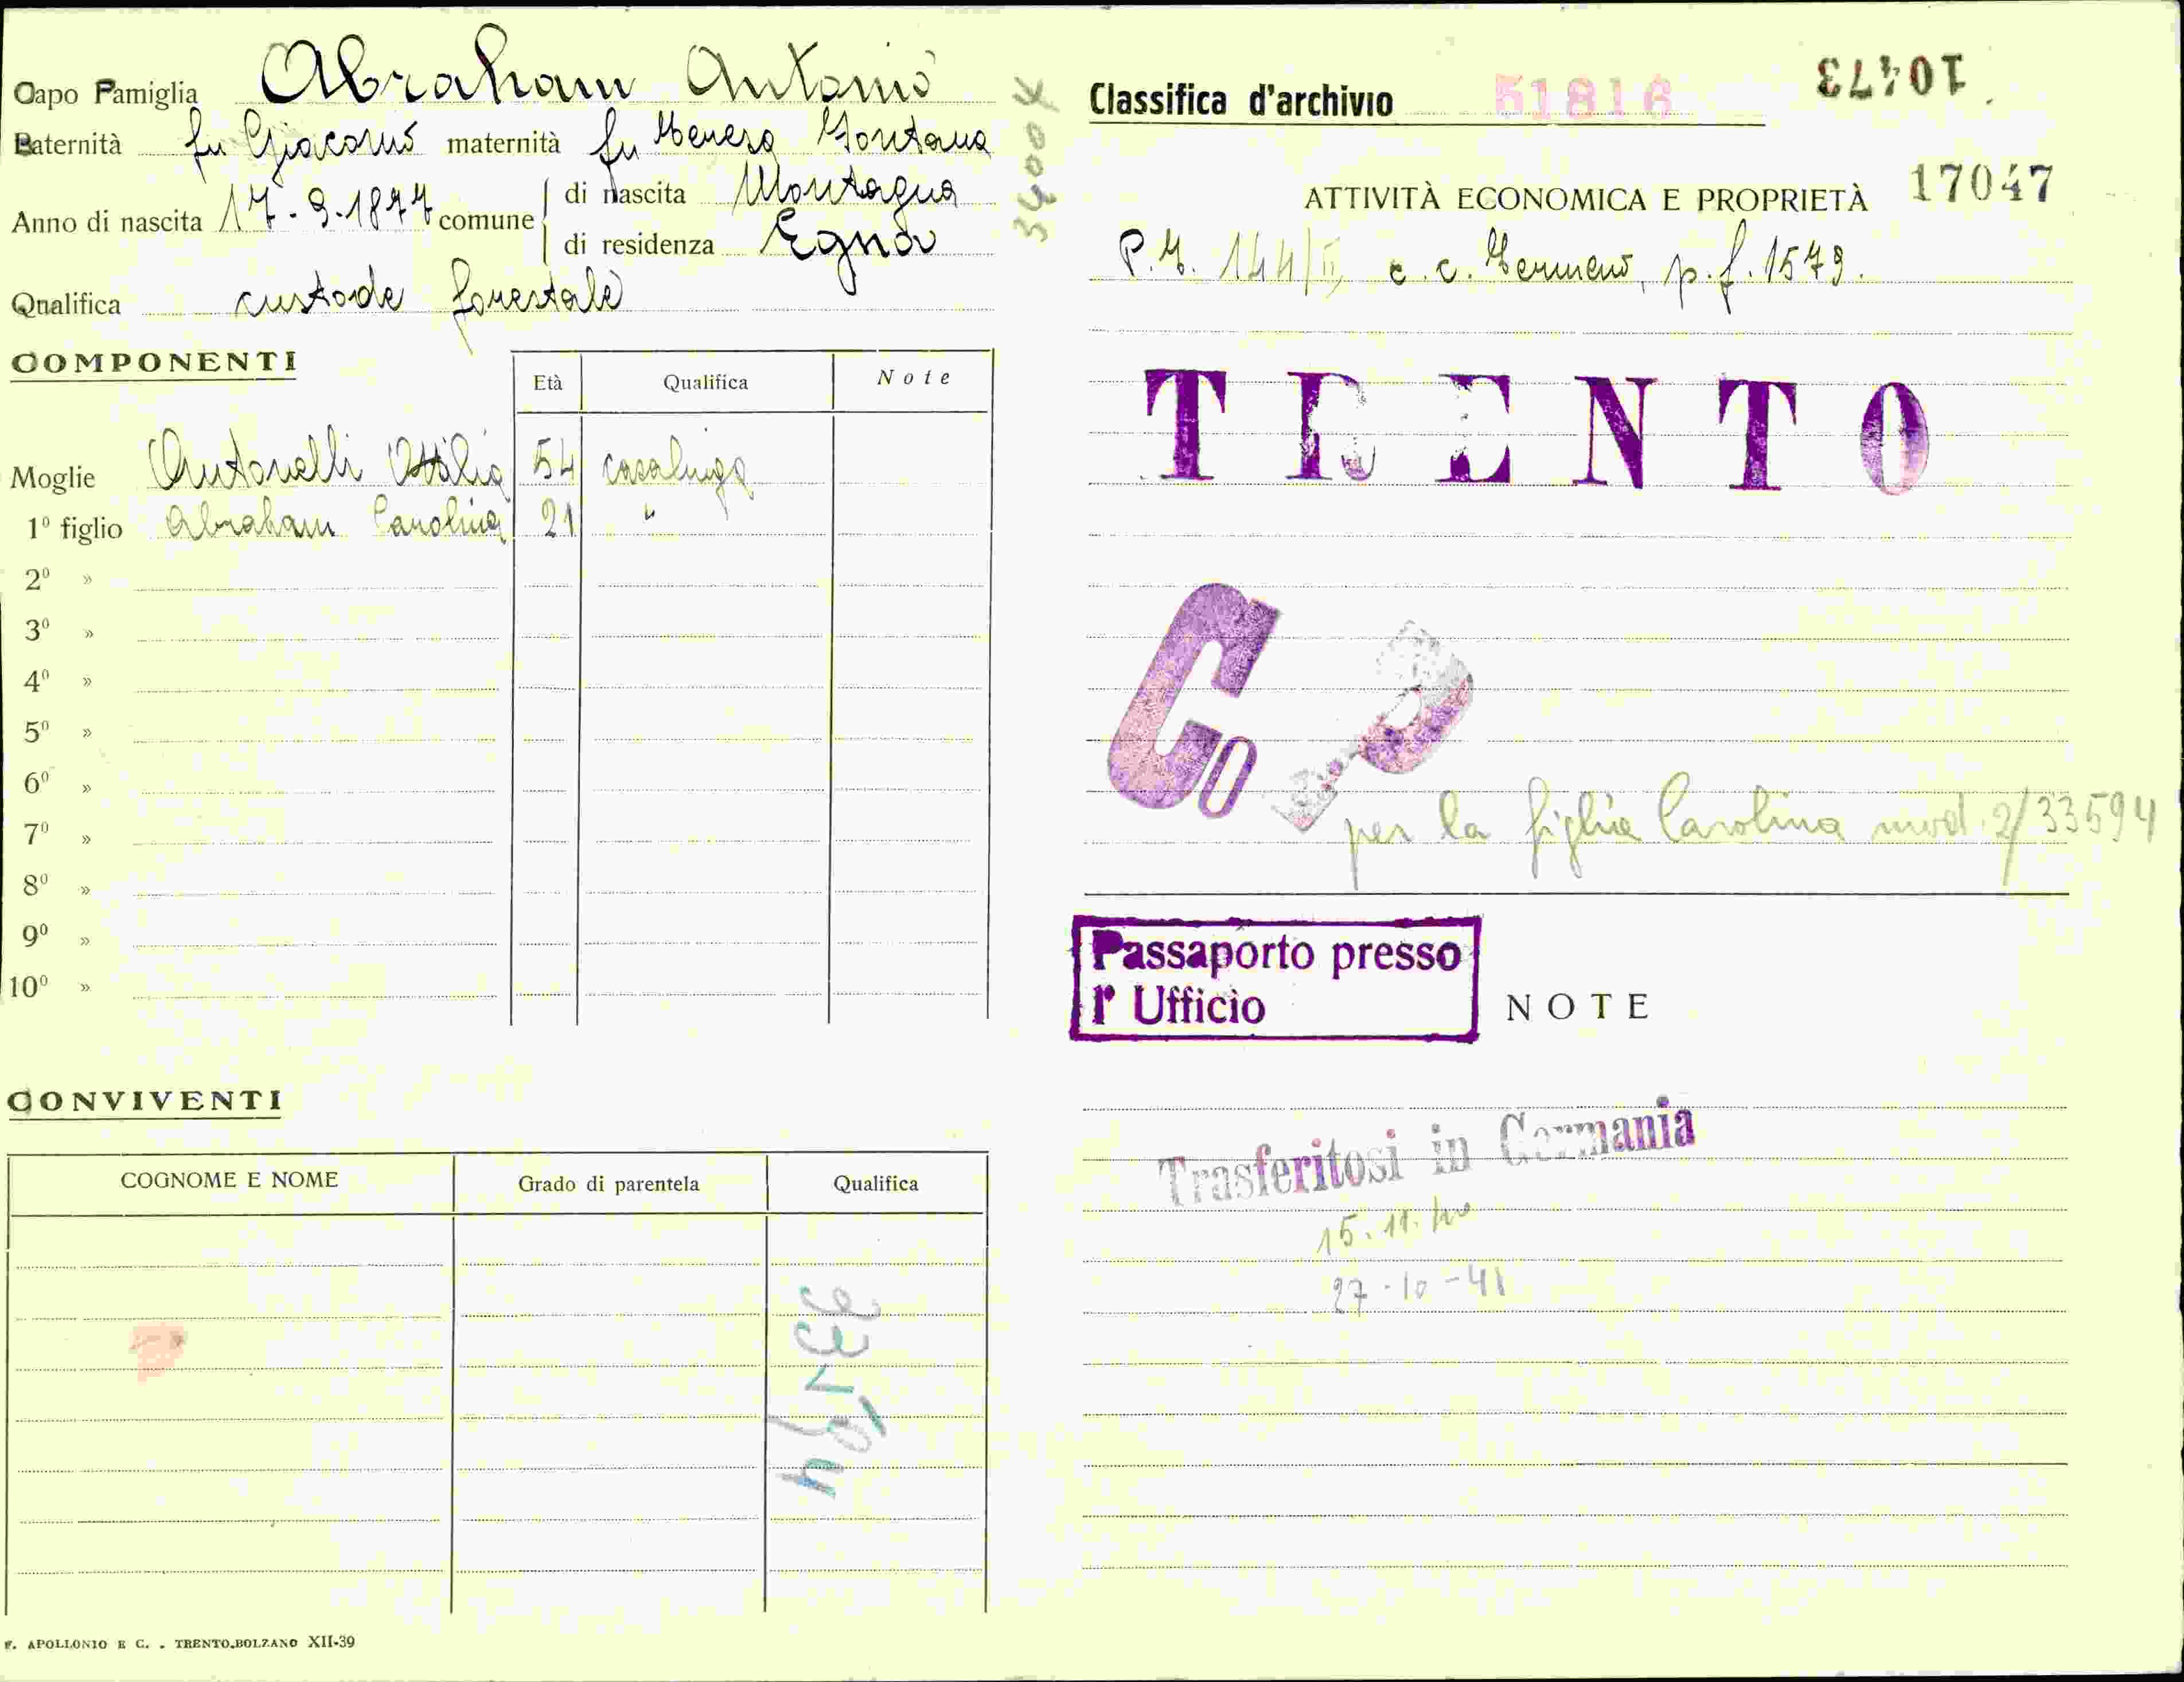 Capo Famiglia Abraham Antonio
Paternità fu Giacomo maternità fu Teresa Fontana
Anno di nascita 17-9-1877 comune di nascita Montagna
di residenza Egna
Qualifica custode forestale
COMPONENTI
Età Qualifica Note
Moglie Antonelli Ottilia 54 casalinga
1º figlio Abraham Carolina 21 "
2º »
3º »
4º »
5º »
6º »
7º »
8º »
9º »
10º »
CONVIVENTI
COGNOME E NOME Grado di parentela Qualifica
F. APOLLONIO E C. - TRENTO-BOLZANO XII-39
10473
Classifica d'archivio 51816
17047
ATTIVITÀ ECONOMICA E PROPRIETÀ
P.T. 144/II, c.c. Termeno, p.f. 1579.
TRENTO
Co
per la figlia Carolina mod. 2/33594
Passaporto presso
l' Ufficio
NOTE
Trasferitosi in Germania
15.11.40
27-10-41